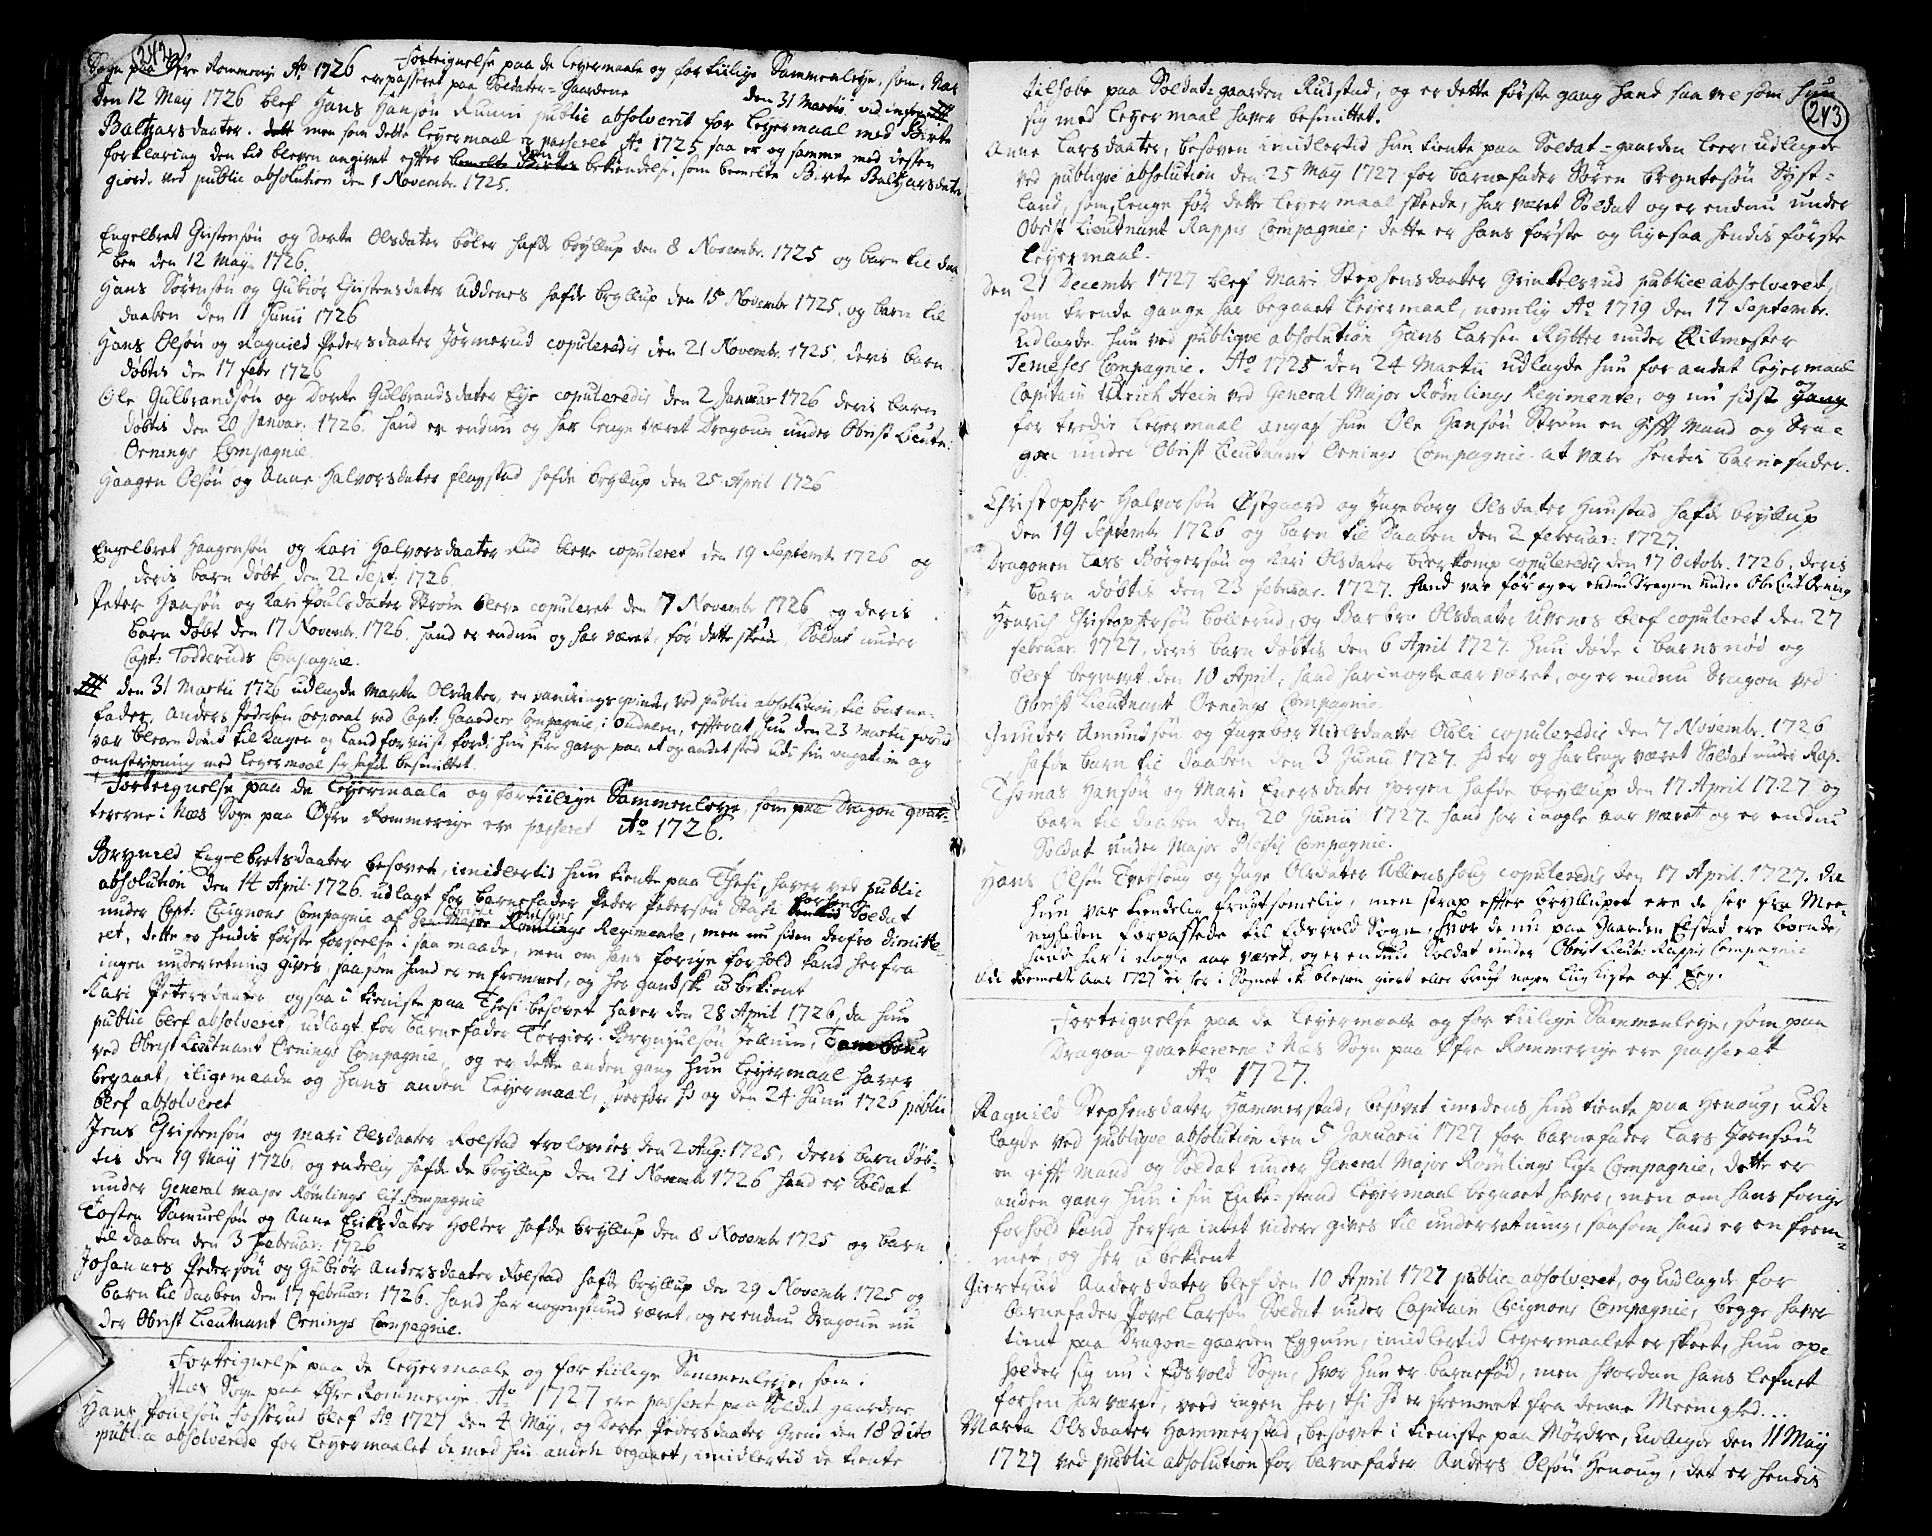 242.
Forteignelse paa de Leyermaale og fortiilige Sammenleye, som, Næs
Sogn paa Øfre Rommerige Ao 1726 ere passeret paa Soldater-Gaardene
den 31 Martii vid infra
Den 12 May 1726 blef Hans Hansøn Ruuni public absolverit for Leyermaal med Birte
Baltzarsdaater. men som dette Leyermaal er passeret Ao 1725 saa er og samme med dessen
forklaring den tid bleven angivet effter bekiendelse, som bemelte Birte Baltzarsdater
giorde ved public absolution den 1 Novembr. 1725.
Engelbret Gristensøn og Dorte Olsdater Bøler hafde bryllup den 8 Novembr. 1725 og barn til daa
ben den 12 May 1726.
Hans Sørensøn og Gubiør Gistensdater Uddenes hafde bryllup den 15 Novembr 1725. og barn til
daaben den 11 Junii 1726
Hans Olsøn og Ragnild Pedersdaater Jørmerud copuleredis den 21 Novembr. 1725, deris barn
døbtis den 17 febr 1726
Ole Gulbrandsøn og Dorte Gulbrandsdater Eye copuleredis den 2 Januar 1726 deris barn
døbtis den 20 Januar. 1726. hand er endnu og har lenge været Dragoun under Obrist Lieutn:
Ornings Compagnie.
Haagen Olsøn og Anne Halvorsdater Flagstad hafde bryllup den 25 April 1726
Engelbret Haagensøn og Kari Halvorsdaater Rud bleve copuleret den 19 Septembr 1726 og
deris barn døbt den 22 Sept: 1726.
Peter Hansøn og Kari Poulsdater Strøm bleve copuleret den 7 Novembr 1726 og deris
barn døbt den 17 Novembr. 1726. hand er endnu og har været, før dette skeede, Soldat under
Capt: Todderuds Compagnie.
den 31 Martii 1726 udlagde Marta Olsdater, en vandringsqvinde, ved public absolution til barne-
fader, Anders Pedersen Corporal ved Capt: Gaarders Compagnie, i Oudalen, efterat hun den 23 Martii forud
var bleven dømt til Kagen og Land forviist, fordi hun fire gange paa et og andet sted udi sin vagation og
omstripning med Leyermaal sig hafde besmittet.
Forteignelse paa de Leyermaale og fortiilige Sammenleye, som paa Dragon qvar-
tererne i Næs Sogn paa Øfre Rommerige ere passeret Ao 1726.
Brynild Engelbretsdaater besovet, imidlertid hun tiente paa Thesi, haver ved public
absolution den 14 April 1726. udlagt for barnefader Peder Petersøn Soldat
under Capt: Cuignons Compagnie af Regimente, men nu siden derfra dimitte-
ret, dette er hendis første forseelse i saa maade, men om hans forige forhold kand herfra
ingen underretning gives, saasom hand er en fremmet, og her gandske ubekient
Kari Petersdaater ogsaa i tieniste paa Thesi besovet haver den 28 April 1726, da hun
public blef absolveret, udlagt for barnefader Torgier Brynjulsøn Tambour
ved Obrist Lieutnant Ornings Compagnie, og er dette anden gang hun Leyermaal haver
begaaet, iligemaade og hans anden Leyermaal, hvorfor hd og den 24 Junii 1726 public
blef absolveret
Jens Christensøn og Mari Olsdaater Rolstad trolovedes den 2 Aug: 1725, deris barn døb-
tis den 19 May 1726, og endelig hafde de bryllup den 21 Novembr 1726 hand er Soldat
under General Major Rømlings Lif-Compagnie
Tosten Samuelsøn og Anne Eriksdater Holter hafde bryllup den 8 Novembr 1725 og barn
til daaben den 3 Februar: 1726
Johannes Pedersøn og Gubiør Andersdaater Rolstad hafde bryllup den 29 Novembr. 1725 og
barn til daaben den 17 februar: 1726. hand har nogenstund været, og er endnu Dragoun un
der Obrist Lieutnant Ornings Compagnie.
Forteignelse paa de Leyermaale og fortiilige Sammenleye, som i
Næs Sogn paa Øfre Rommerige Ao 1727 ere passeret paa Soldat gaardene
Hans Poulsøn Fosserud blef Ao 1727 den 4 May, og Dorte Pedersdaater Grem den 18 dito
publice absolverede for Leyermaalet de med hin anden begaaet, imidlertid de tiente
243
tilsole paa Soldat-gaarden Rustad, og er dette første gang hand saavel som hun
sig med Leyermaal haver besmittet.
Anne Larsdaater, besoven imidlertid hun tiente paa Soldat-gaarden Leer, udlagde
ved publique absolution den 25 May 1727 for barnefader Søren Bryntesøn Syst-
land, som lenge før dette Leyermaal skeede, har været Soldat og er endnu under
Obrist Lieutnant Rappis Compagnie; dette er hans første og ligesaa hendis første
Leyermaal.
Den 21 Decembr 1727 blef Mari Stephensdaater Grinkelsrud publice absolveret,
som trende gange har begaaet Leyermaal, nemlig Ao 1719 den 17 Septembr.
udlagde hun ved publique absolution Hans Larsen Rytter under Ritmester
Temeses Compagnie. Ao 1725 den 24 Martii udlagde hun for andet leyermaal
Capitain Ulrich Hein ved General Major Rømlings Regimente, og nu sidst
for tredie Leyermaal angaf hun Ole Hansøn Strøm en Gifft Mand og Dra-
gon under Obrist Lieutnant Ornings Compagnie at være hendes barnefader.
Christopher Halvorsøn Østgaard og Ingeborg Olsdater Huustad hafde bryllup
den 19 Septembr 1726 og barn til Daaben den 2 februar: 1727.
Dragonen Lars Børgersøn og Kari Olsdater Bierkomp copuleredis den 17 Octobr. 1726. deris
barn døbtis den 23 februar. 1727. hand var før og er endnu Dragon under Obr Liut Orning
Henrich Christophersøn Bollerud, og Barbro Olsdaater Uvenes blef copuleret den 27
februar. 1727, deris barn døbtis den 6 April 1727. hun døde i barnsnød og
blef begravet den 10 April; hand har i nogle aar været, og er endnu Dragon ved
Obrist Lieutnant Ornings Compagnie
Gunder Amundsøn og Ingebor Nielsdaater Ousli copuleredis den 7 Novembr. 1726
hafde barn til Daaben den 3 Junii 1727. hd er og har lenge været Soldat under Rap.
Thomas Hansøn og Mari Evensdater Horgen hafde bryllup den 17 April 1727 og
barn til daaben den 20 Junii 1727. hand har i nogle aar været og er endnu
Soldat under Major Compagnie.
Hans Olsøn Tvetsoug og Inge Olsdater Ullenshoug copuleredis den 17 April. 1727. da
hun var kiendelig frugtsomelig, men strax effter bryllupet ere de her fra Mee-
nigheden forpassede til Edsvold Sogn, hvor de nu paa Gaarden Elstad ere boende,
hand har i nogle aar været, og er endnu Soldat under Obrist Lieutn: Rappis Compagnie
Udi bemelte Aar 1727 er her i Sognet ik bleven giort eller brugt nogen Liig Kiste af Eeg.
Forteignelse paa de Leyermaale og fortiilige Sammenleye, som paa
Dragon-qvartererne i Næs Sogn paa Øfre Rommerige ere passeret
Ao 1727.
Ragnild Stephensdater Hammerstad, besovet imedens hun tiente paa Henoug, ud-
lagde ved publique absolution den 5 Januarii 1727 for barnefader Lars Joensøn
en gifft mand og Soldat under General Major Rømlings Lif Compagnie, dette er
anden gang hun i sin Enke-stand Leyermaal begaaet haver, men om hans forige
forhold kand herfra intet videre gives til underretning, saasom hand er en frem-
met og her ubekient
Giertrud Andersdater blef den 10 April 1727 publice absolveret, og udlagde for
barnefader Povel Larsøn Soldat under Capitain Cuignons Compagnie, begge haver
tient paa Dragon-gaarden Eggum, imidlertid Leyermaalet er skeet, hun ope
holder sig nu i Edsvold Sogn, hvor hun er barnefød, men hvordan hans Lefnet
forhen har været, veed ingen her, thi hd er fremmet fra denne Meenighed...
Marta Olsdaater Hammerstad, besovet i tieniste paa Mørdre, udlagde den 11 May
1727 ved public absolution for barnefader Anders Olsøn Henoug, det er hendis